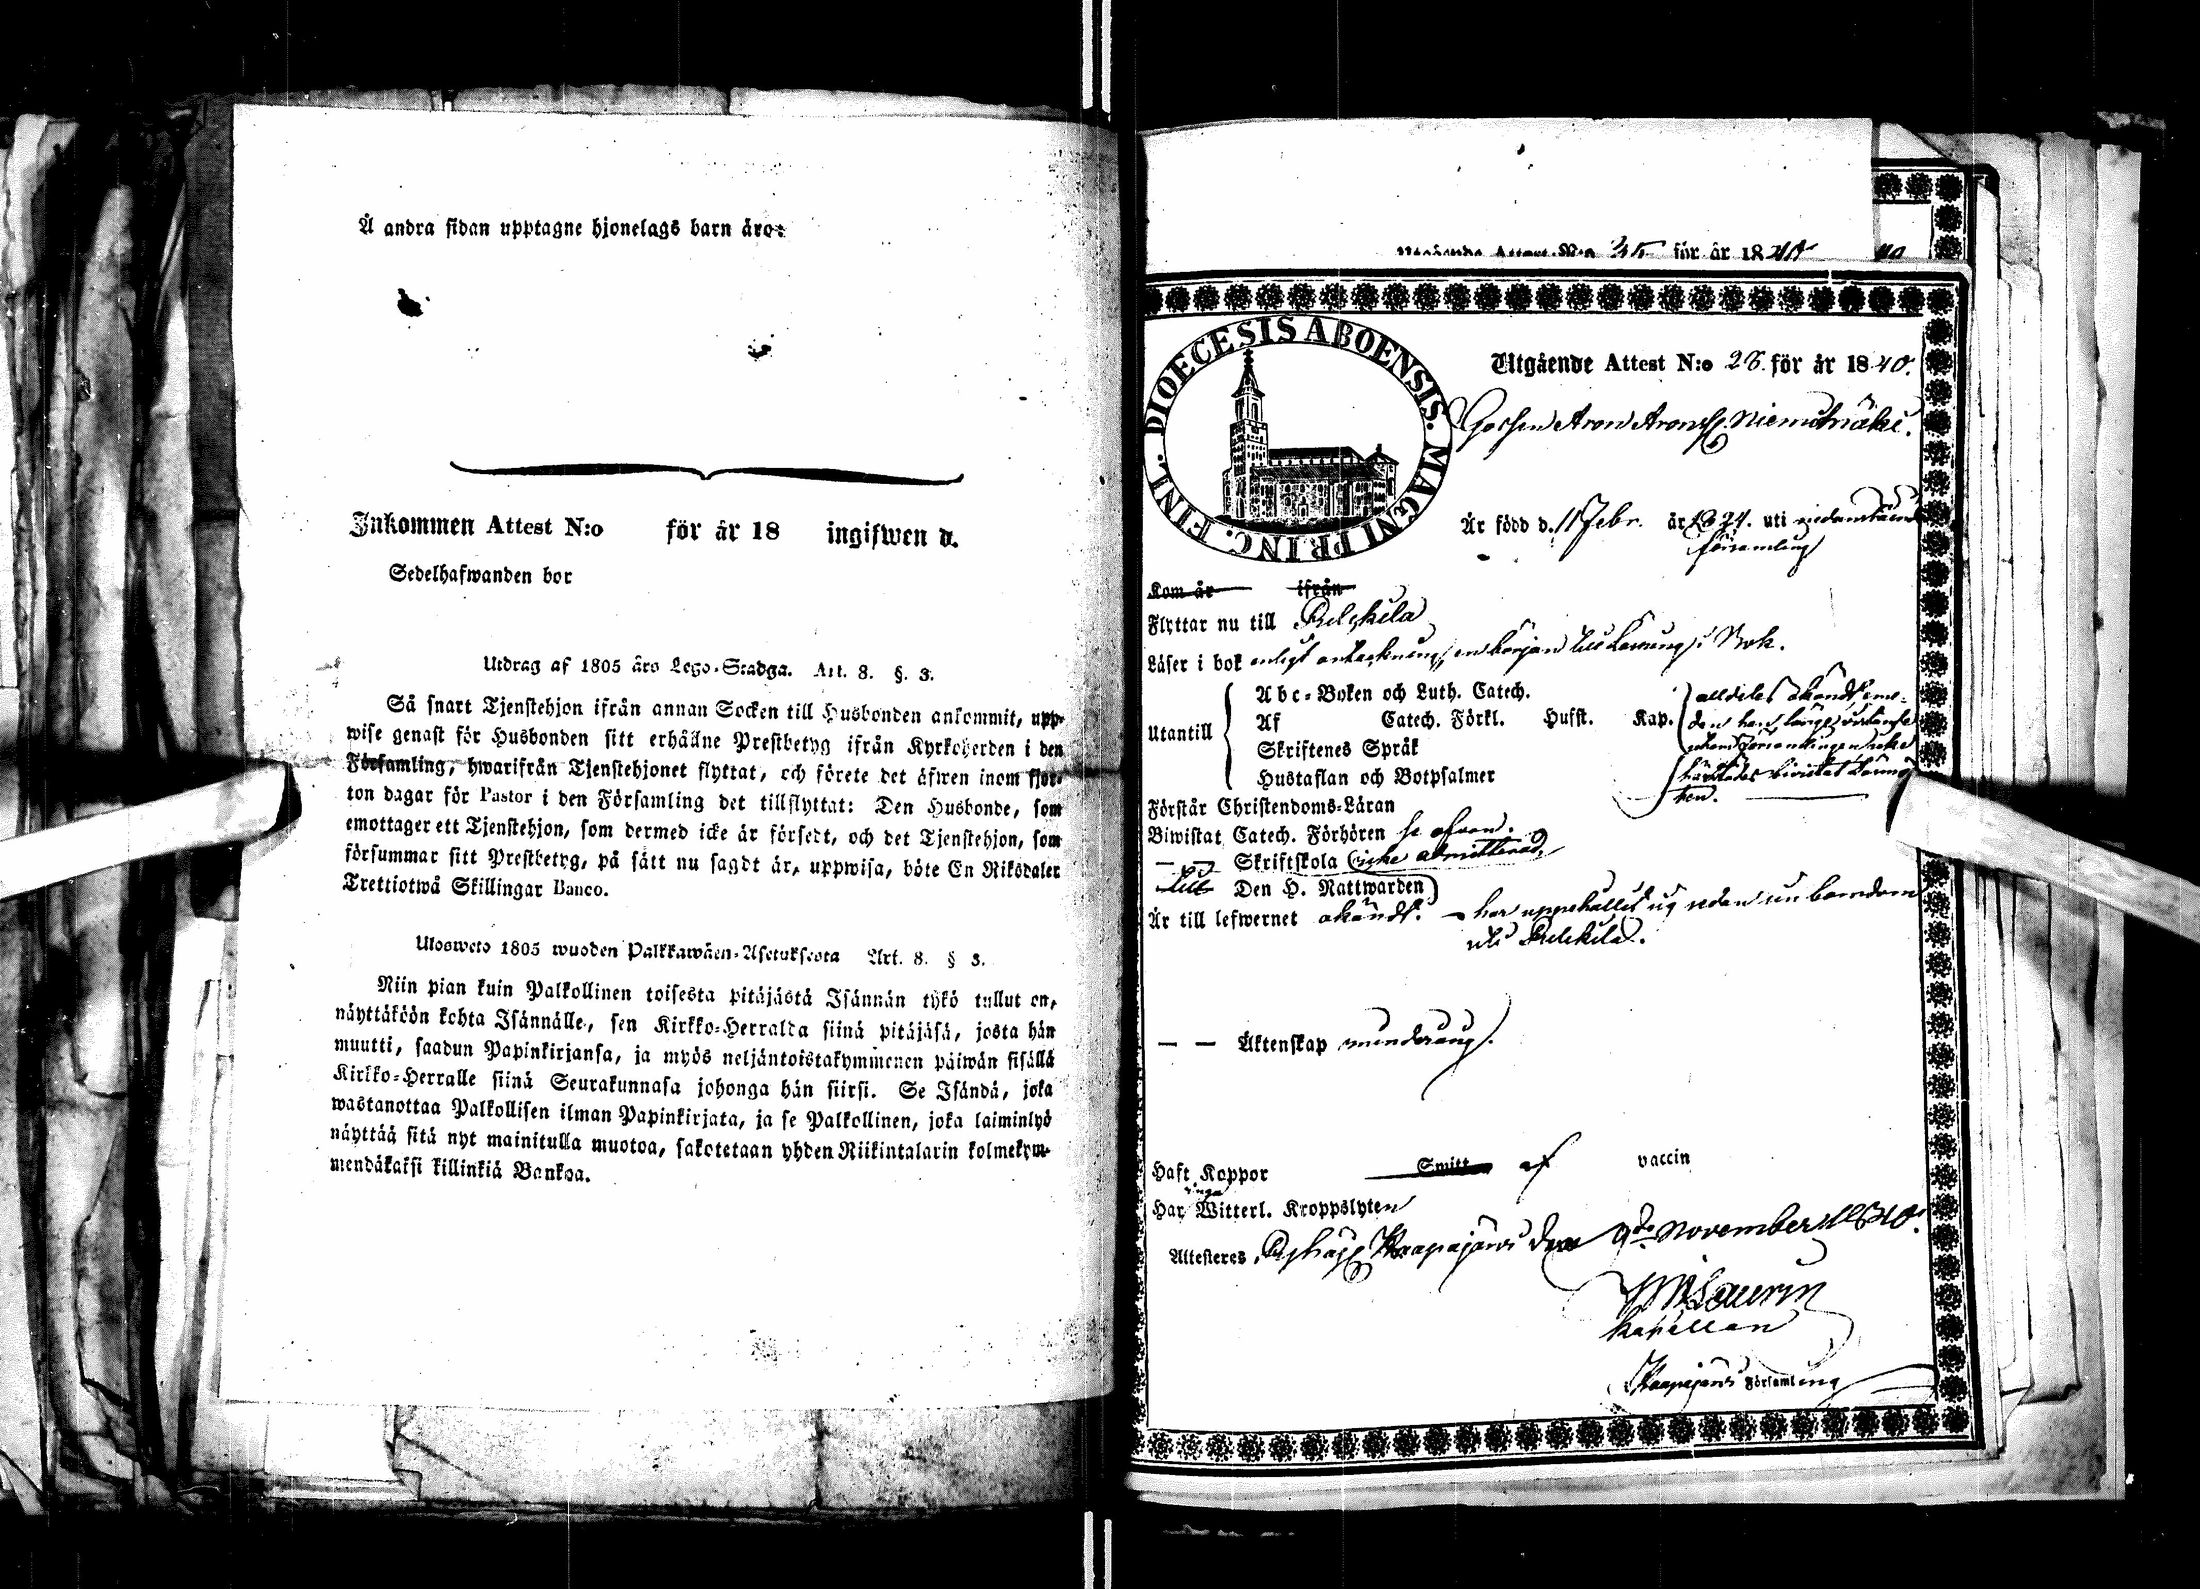 Å andra sidan upptagne hjonelags barn äro:
Inkommen Attest N:o för år 18 ingifwen d.
Sedelhafwanden bor
Utdrag af 1805 års Lego-Stadga. Art. 8. §. 3.
Så snart Tjenstehjon ifrån annan Socken till Husbonden ankommit, upp-
wise genast för Husbonden sitt erhållne Prestbetyg ifrån Kyrkoherden i den
Församling, hwarifrån Tjenstehjonet flyttat, och förete det äfwen inom fjor-
ton dagar för Pastor i den Församling det tillflyttat: Den Husbonde, som
emottager ett Tjenstehjon, som dermed icke är försedt, och det Tjenstehjon, som
försummar sitt Prestbetyg, på sätt nu sagdt är, uppwisa, böte En Riksdaler
Trettiotwå Skillingar Banco.
Ulosweto 1805 wuoden Palkkawäen-Asetuksesta Art. 8. § 3.
Niin pian kuin Palkollinen toisesta pitäjästä Isännän tykö tullut on,
näyttäköön kohta Isännälle, sen Kirkko-Herralta siinä pitäjäsä, josta hän
muutti, saadun Papinkirjansa, ja myös neljäntoistakymmenen päiwän sisällä
Kirkko-Herralle siinä Seurakunnasa johonga hän siirsi. Se Isändä, joka
wastanottaa Palkollisen ilman Papinkirjata, ja se Palkollinen, joka laiminlyö
näyttää sitä nyt mainitulla muotoa, sakotetaan yhden Riikintalarin kolmekym-
mendäkaksi killinkiä Bankoa.
Utgående Attest N:o 35 för år 1840
40
DIOECESIS ABOENSIS. MAGNI PRINC. FINL.
Utgående Attest N:o 28 för år 1840.
Gossen Aron Aronss. Niemenmäki.
Är född d. 11 Febr. år 1824. uti nedanstående
församling
Kom år ifrån
Flyttar nu till Pelkila
Läser i bok enligt anteckning, en början till läsning i Bok.
Utantill
Abc-Boken och Luth. Catech.
Af Catech. Förkl. Husst. Kap.
Skriftenes Språk
Hustaflan och Botpsalmer
alldeles okändt, eme-
dan han länge
utom församlingen icke
härstädes biwistat
Förstår Christendoms-Läran
Biwistat Catech. Förhören se ofvan.
— — Skriftskola (icke admitterad,
till Den H. Nattwarden)
Är till lefwernet okändt. — har uppehållit sig sedan sin barndom
uti Pelkila.
— — Äktenskap minderårig.
Haft Koppor Smitt af vaccin
Har inga Witterl. Kroppslyten
Attesteres, Kaapajärvi den 9de November 1840.
Laurin
Kapellan
Församling